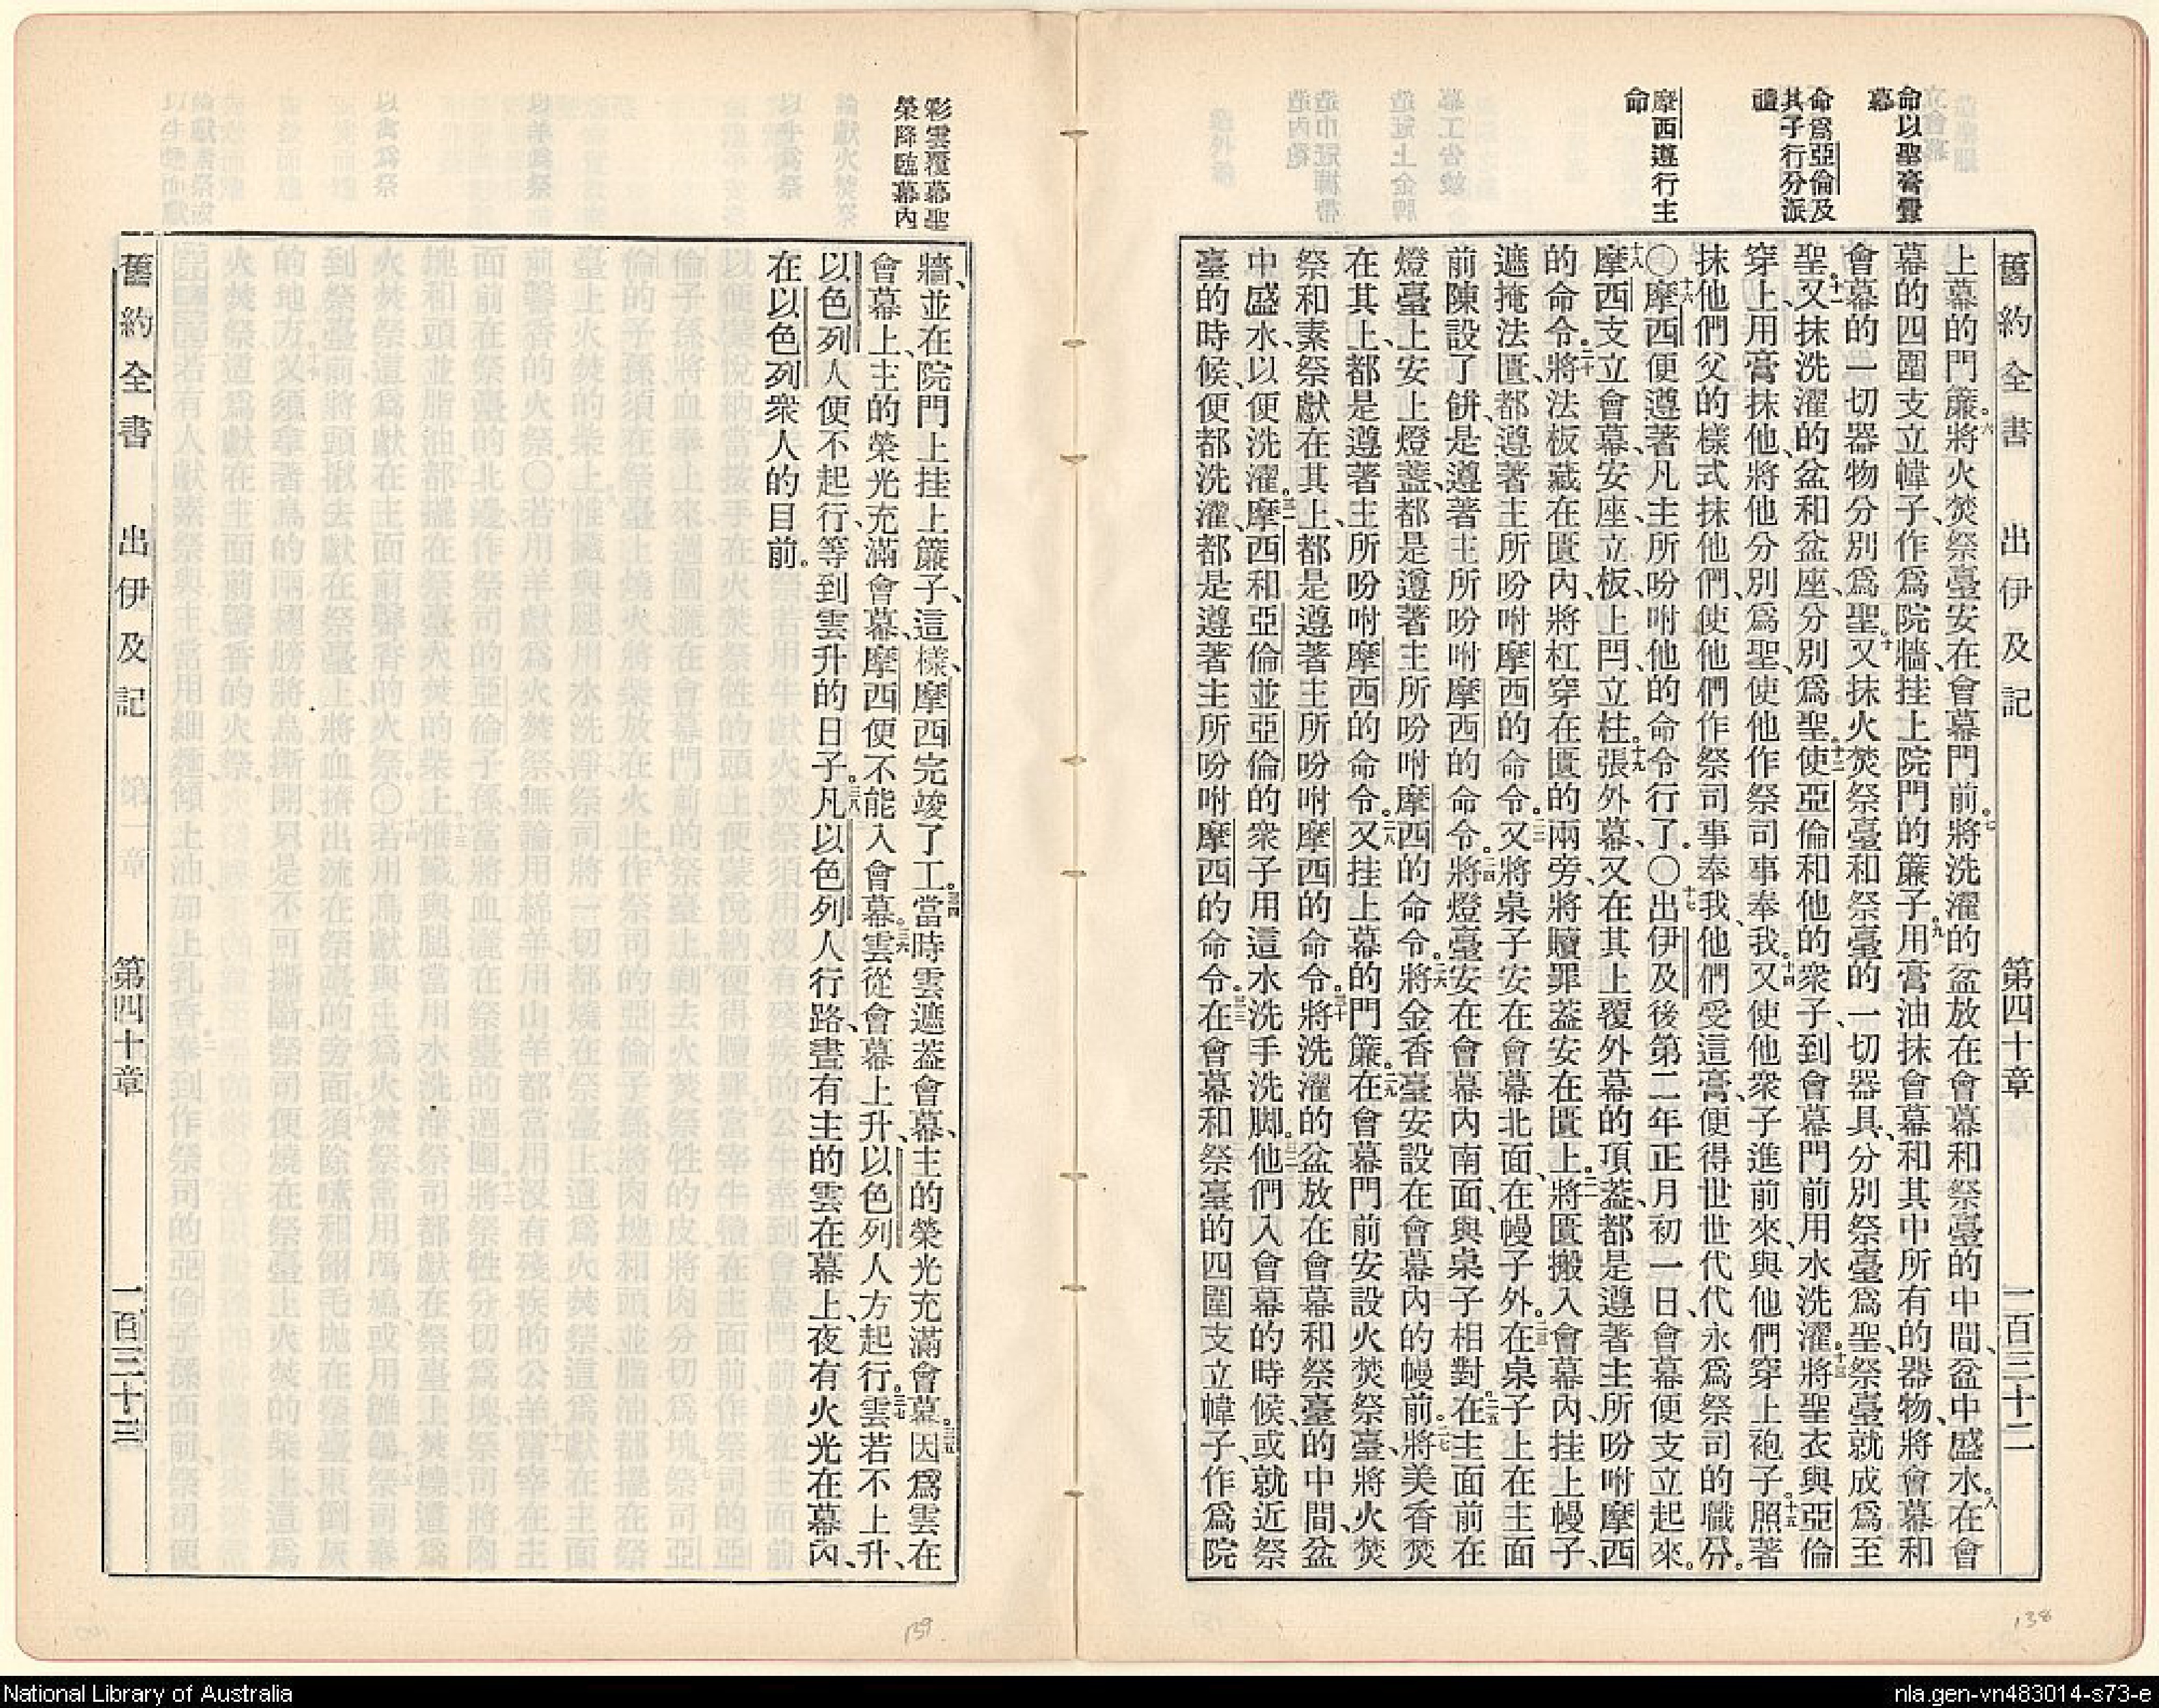 舊約全書 出伊及記 第四十章 一百三十二
命以聖膏釁
幕
命爲亞倫及
其子行分派
禮
摩西遵行主
命
上幕的門簾。六將火焚祭臺安在會幕門前。七將洗濯的盆放在會幕和祭臺的中間、盆中盛水。八在會
幕的四圍支立幃子、作爲院牆、挂上院門的簾子。九用膏油抹會幕和其中所有的器物、將會幕和
會幕的一切器物分別爲聖。十又抹火焚祭臺和祭臺的一切器具、分別祭臺爲聖、祭臺就成爲至
聖。十一又抹洗濯的盆和盆座、分別爲聖。十二使亞倫和他的衆子、到會幕門前用水洗濯。十三將聖衣與亞倫
穿上、用膏抹他、將他分別爲聖、使他作祭司事奉我。十四又使他衆子進前來、與他們穿上袍子。十五照著
抹他們父的樣式抹他們、使他們作祭司事奉我、他們受這膏、便得世世代代、永爲祭司的職分。
〇十六摩西便遵著凡主所吩咐他的命令行了。〇十七出伊及後第二年正月初一日、會幕便支立起來。
十八摩西支立會幕、安座、立板、上閂、立柱。十九張外幕、又在其上覆外幕的頂蓋、都是遵著主所吩咐摩西
的命令。二十將法板藏在匱內、將杠穿在匱的兩旁、將贖罪蓋安在匱上。二一將匱搬入會幕內、挂上幔子、
遮掩法匱、都遵著主所吩咐摩西的命令。二二又將桌子安在會幕北面、在幔子外。二三在桌子上在主面
前陳設了餅、是遵著主所吩咐摩西的命令。二四將燈臺安在會幕內南面、與桌子相對。二五在主面前在
燈臺上安上燈盞、都是遵著主所吩咐摩西的命令。二六將金香臺安設在會幕內的幔前。二七將美香焚
在其上、都是遵著主所吩咐摩西的命令。二八又挂上幕的門簾。二九在會幕門前安設火焚祭臺、將火焚
祭和素祭獻在其上、都是遵著主所吩咐摩西的命令。三十將洗濯的盆放在會幕和祭臺的中間、盆
中盛水、以便洗濯。三一摩西和亞倫並亞倫的衆子用這水洗手洗脚。三二他們入會幕的時候、或就近祭
臺的時候、便都洗濯、都是遵著主所吩咐摩西的命令。三三在會幕和祭臺的四圍支立幃子、作爲院
彩雲覆幕聖
榮降臨幕內
牆、並在院門上挂上簾子、這樣、摩西完竣了工。三四當時雲遮蓋會幕、主的榮光充滿會幕。三五因爲雲在
會幕上、主的榮光充滿會幕、摩西便不能入會幕。三六雲從會幕上升、以色列人方起行。三七雲若不上升、
以色列人便不起行、等到雲升的日子。三八凡以色列人行路、晝有主的雲在幕上、夜有火光在幕內、
在以色列衆人的目前。
舊約全書 出伊及記 第四十章 一百三十三
139
138
National Library of Australia
nla.gen-vn483014-s73-e